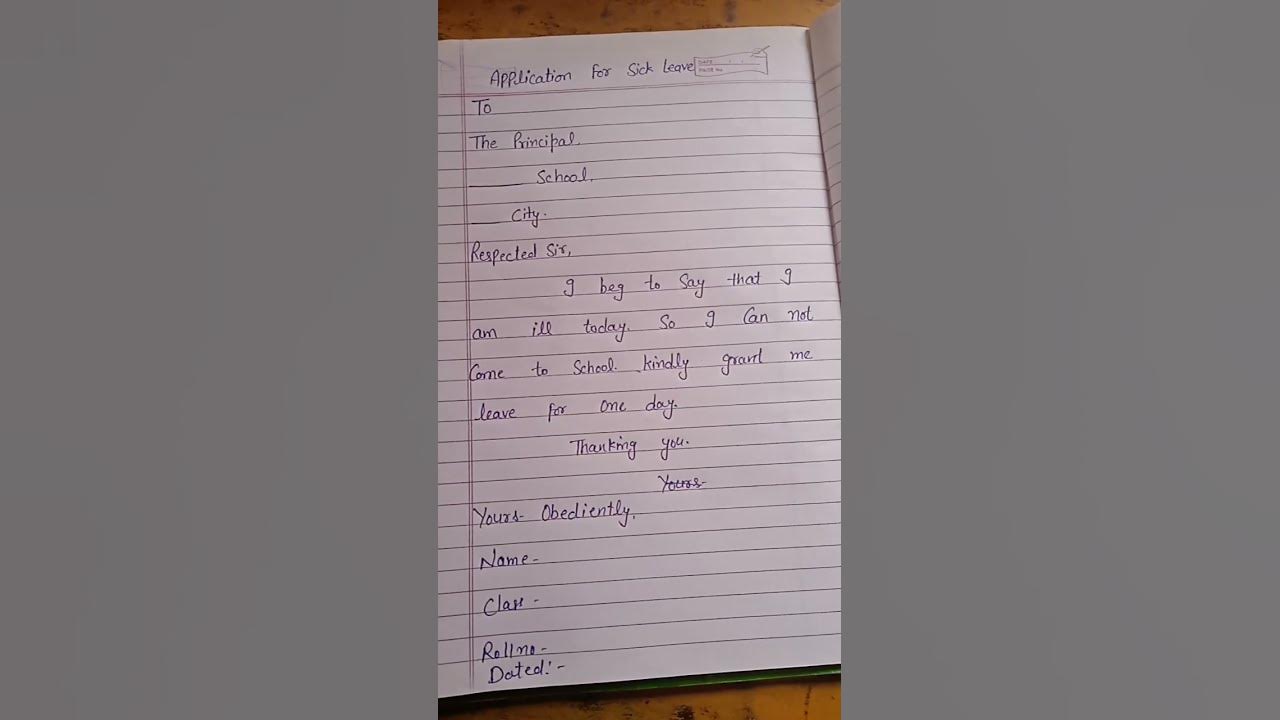 Application for Sick Leave
DATE
PAGE No.
To
The Principal,
______ School,
___ City.
Respected Sir,
I beg to say that I
am ill today. So I can not
Come to School. kindly grant me
leave for one day.
Thanking you.
Yours-
Yours- Obediently,
Name-
Class-
Roll no-
Dated:-